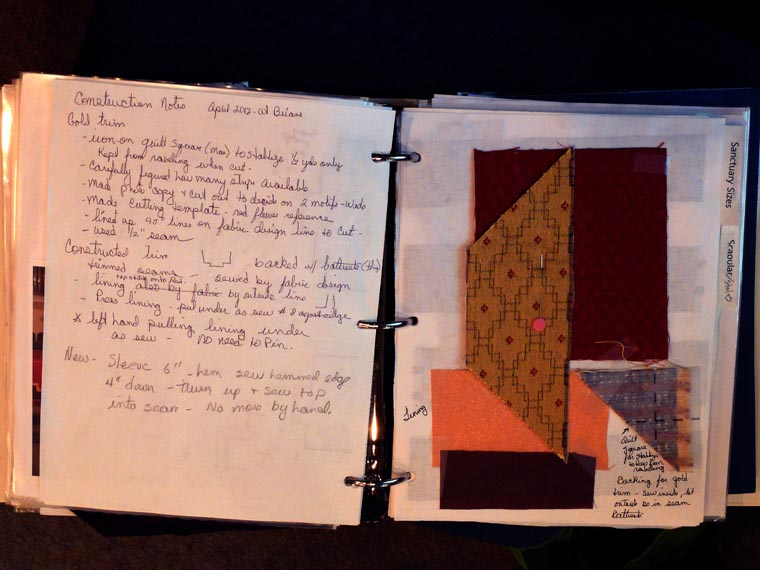 Construction Notes April 2012 - w/
Gold trim
- iron-on quilt square (Max) to stablize ½ yds only
Kept from raveling when cut.
- Carefully figured how many strips available
- Made photo copy & cut out to decide on 2 motifs-wide
- Made Cutting template - red flower reference
- lined up 40" lines on fabric design line to cut -
- used ½" seam
Constructed Trim backed w/ batiste
trimmed seams - sewed by fabric design
top stitch onto Red.
- lining also by fabric by outside line
- Press lining - pul under as sew # 8 against edge
* left hand pulling lining under
as sew - No need to Pin.
New - Sleeve 6" - hem sew hemmed edge
4" down - turn up & sew top
into seam - No more by hand.
Sanctuary Sizes
Scapular
Lining
Quilt
square
for
to keep from
raveling
Backing for gold
trim - sew inside, but
outside so in seam